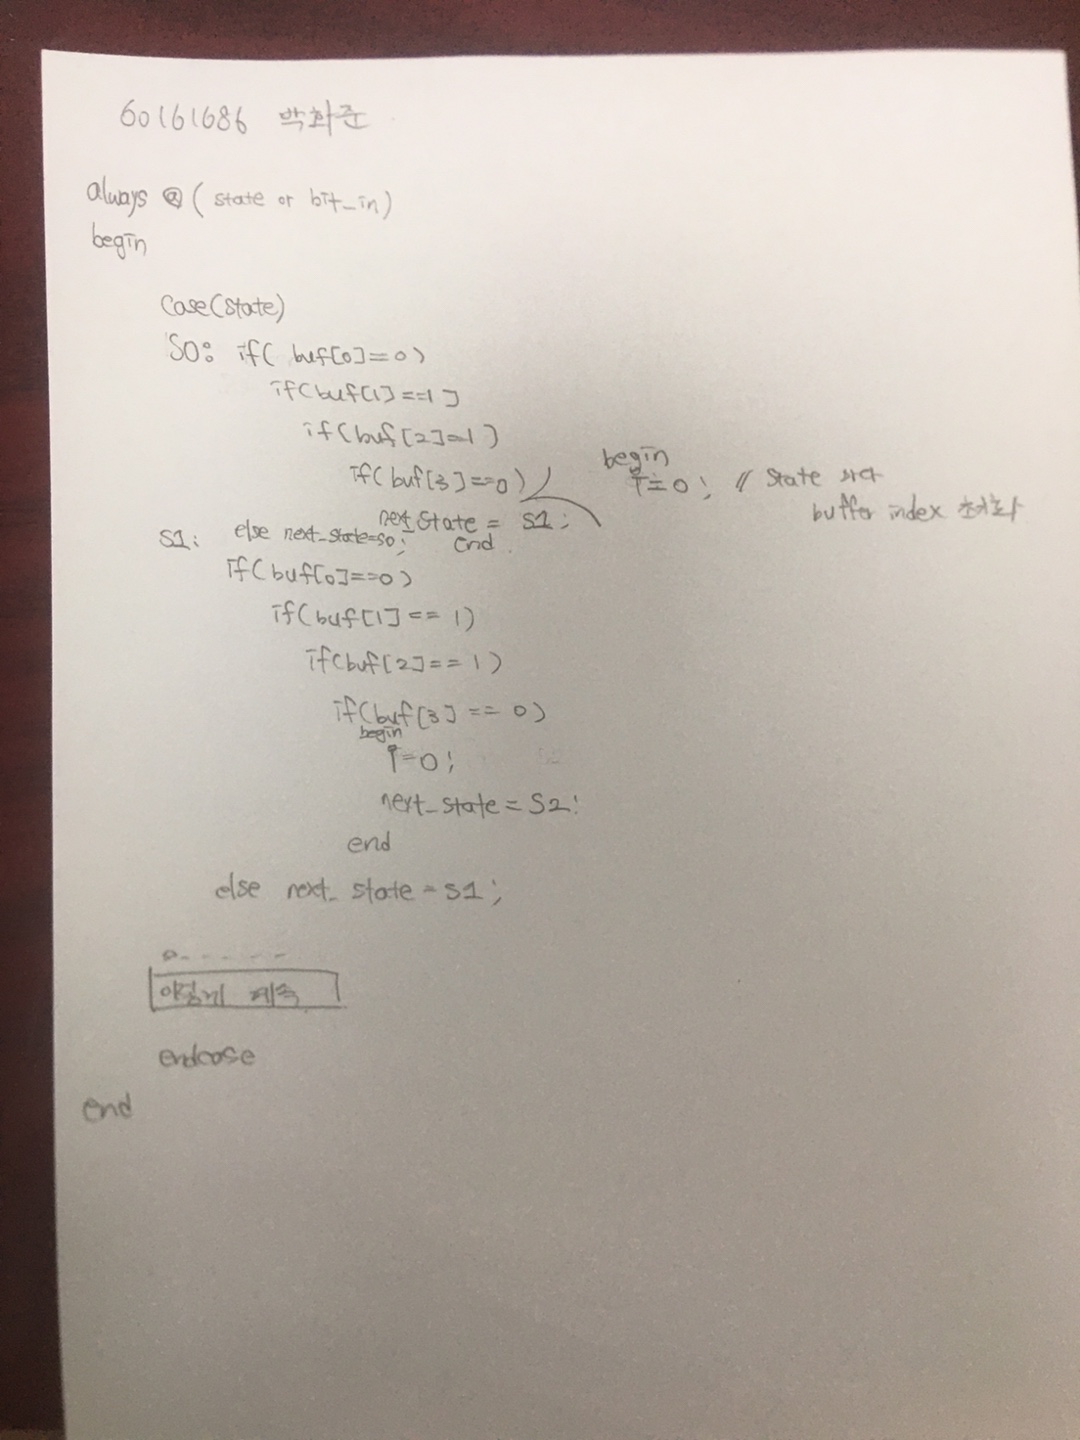 60161686 박화준
always @ ( state or bit_in)
begin
case(state)
S0: if( buf[0]==0)
if(buf[1]==1]
if(buf[2]=1)
if(buf[3]==0)
begin
i=0; // state 마다
buffer index 초기화
next_state = S1;
else next_state=S0; end
S1:
if(buf[0]==0)
if(buf[1] == 1)
if(buf[2]==1)
if(buf[3] == 0)
begin
i=0;
next_state = S2;
end
else next_state = S1;
이렇게 계속
endcase
end